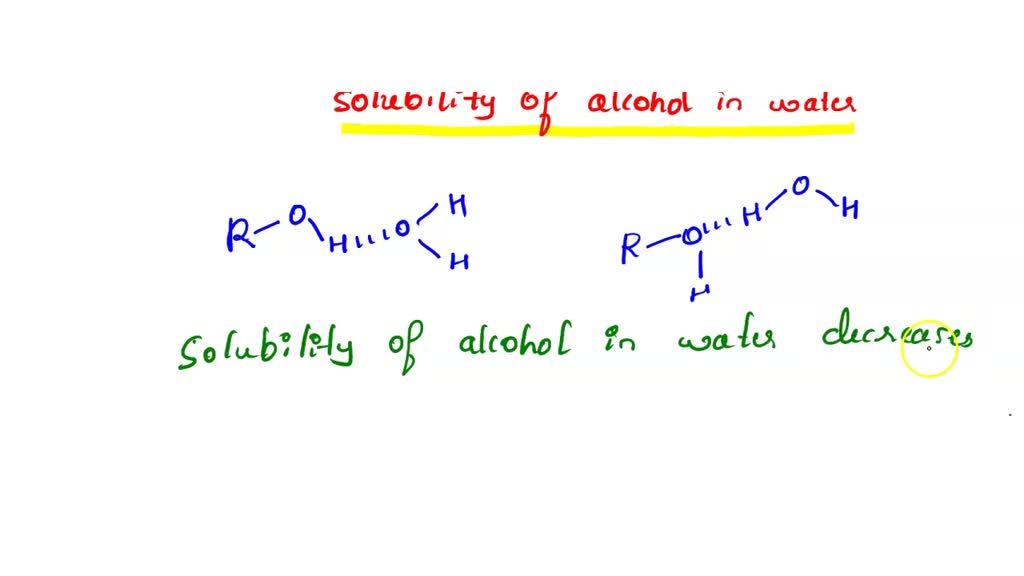 Solubility of alcohol in water
R O H O H H
R O H H O H
Solubility of alcohol in water decreases